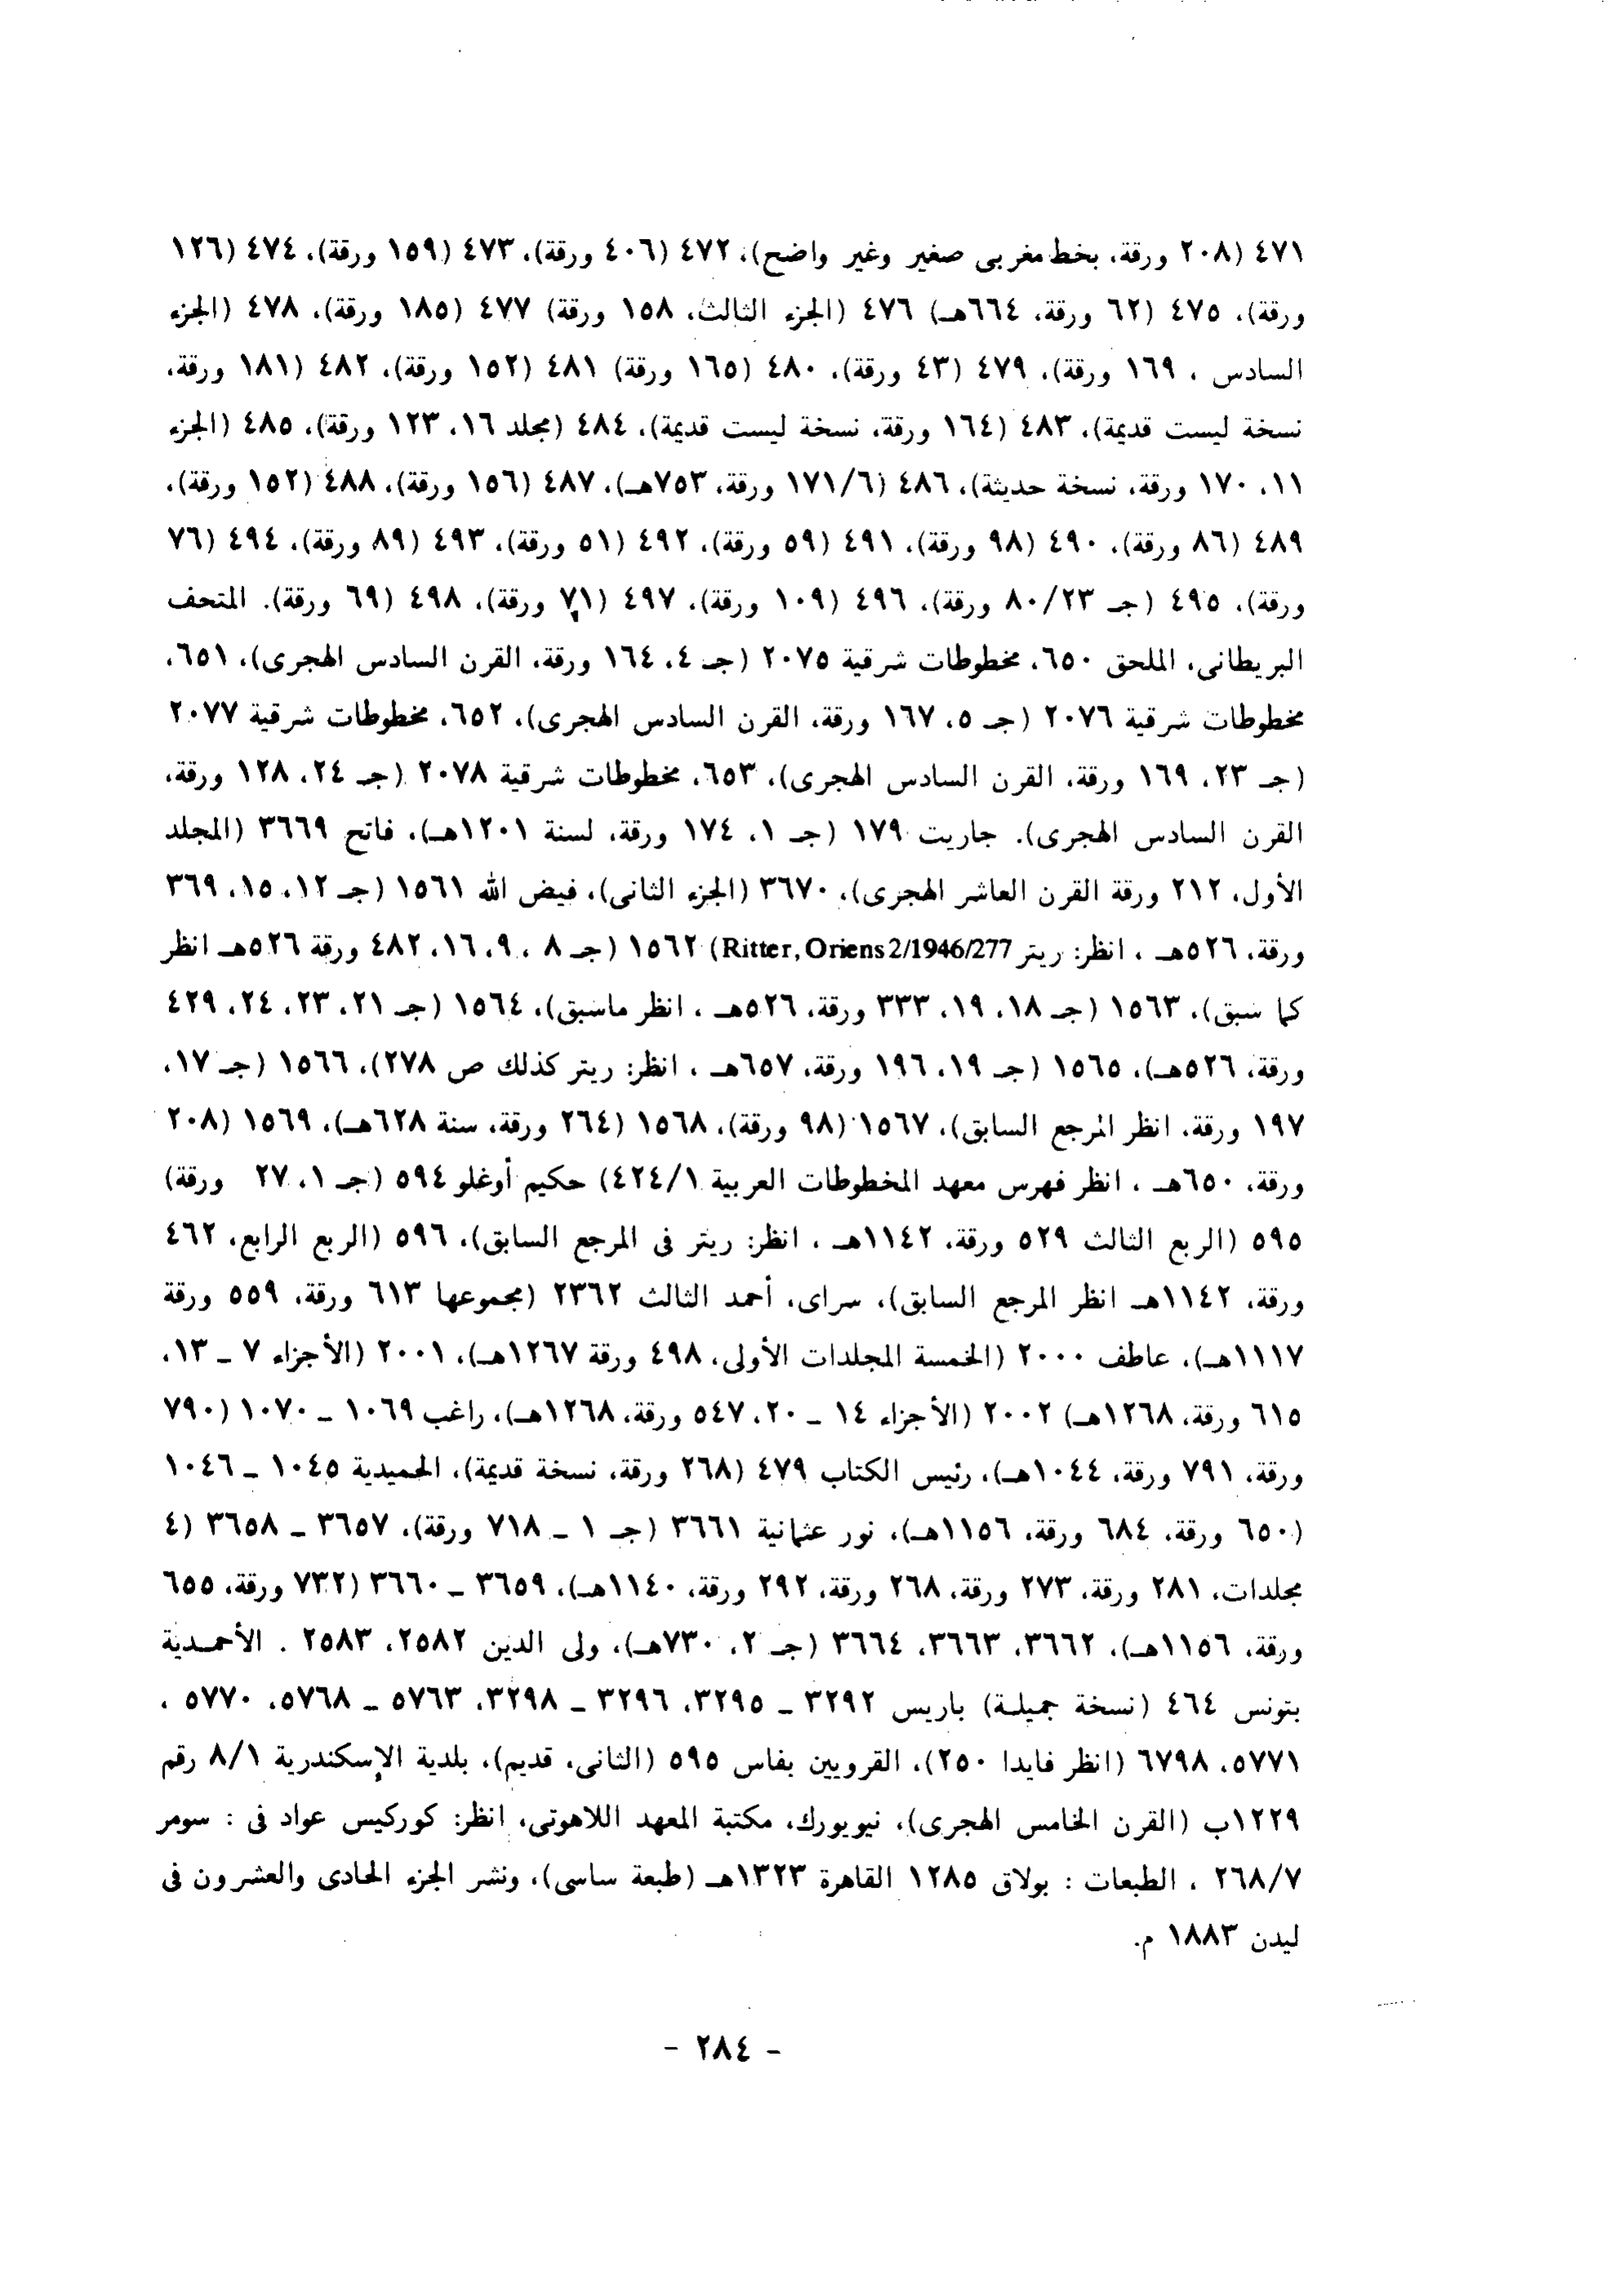 ٤٧١ (٢٠٨ ورقة، بخط مغربى صغير وغير واضح)، ٤٧٢ (٤٠٦ ورقة)، ٤٧٣ (١٥٩ ورقة)، ٤٧٤ (١٢٦
ورقة)، ٤٧٥ (٦٢ ورقة، ٦٦٤هـ) ٤٧٦ (الجزء الثالث، ١٥٨ ورقة) ٤٧٧ (١٨٥ ورقة)، ٤٧٨ (الجزء
السادس ، ١٦٩ ورقة)، ٤٧٩ (٤٣ ورقة)، ٤٨٠ (١٦٥ ورقة) ٤٨١ (١٥٢ ورقة)، ٤٨٢ (١٨١ ورقة،
نسخة ليست قديمة)، ٤٨٣ (١٦٤ ورقة، نسخة ليست قديمة)، ٤٨٤ (مجلد ١٦، ١٢٣ ورقة)، ٤٨٥ (الجزء
١١، ١٧٠ ورقة، نسخة حديثة)، ٤٨٦ (١٧١/٦ ورقة، ٧٥٣هـ)، ٤٨٧ (١٥٦ ورقة)، ٤٨٨ (١٥٢ ورقة)،
٤٨٩ (٨٦ ورقة)، ٤٩٠ (٩٨ ورقة)، ٤٩١ (٥٩ ورقة)، ٤٩٢ (٥١ ورقة)، ٤٩٣ (٨٩ ورقة)، ٤٩٤ (٧٦
ورقة)، ٤٩٥ (جـ ٨٠/٢٣ ورقة)، ٤٩٦ (١٠٩ ورقة)، ٤٩٧ (٧١ ورقة)، ٤٩٨ (٦٩ ورقة). المتحف
البريطانى، الملحق ٦٥٠، مخطوطات شرقية ٢٠٧٥ (جـ ٤، ١٦٤ ورقة، القرن السادس الهجرى)، ٦٥١،
مخطوطات شرقية ٢٠٧٦ (جـ ٥، ١٦٧ ورقة، القرن السادس الهجرى)، ٦٥٢، مخطوطات شرقية ٢٠٧٧
(جـ ٢٣، ١٦٩ ورقة، القرن السادس الهجرى)، ٦٥٣، مخطوطات شرقية ٢٠٧٨ (جـ ٢٤، ١٢٨ ورقة،
القرن السادس الهجرى). جاريت ١٧٩ (جـ ١، ١٧٤ ورقة، لسنة ١٢٠١هـ)، فاتح ٣٦٦٩ (المجلد
الأول، ٢١٢ ورقة القرن العاشر الهجرى)، ٣٦٧٠ (الجزء الثانى)، فيض الله ١٥٦١ (جـ ١٢، ١٥، ٣٦٩
ورقة، ٥٢٦هـ ، انظر: ريتر Ritter, Oriens 2/1946/277) ١٥٦٢ (جـ ٨ ، ٩، ١٦، ٤٨٢ ورقة ٥٢٦هـ انظر
كما سبق)، ١٥٦٣ (جـ ١٨، ١٩، ٣٣٣ ورقة، ٥٢٦هـ ، انظر ماسبق)، ١٥٦٤ (جـ ٢١، ٢٣، ٢٤، ٤٢٩
ورقة، ٥٢٦هـ)، ١٥٦٥ (جـ ١٩، ١٩٦ ورقة، ٦٥٧هـ ، انظر: ريتر كذلك ص ٢٧٨)، ١٥٦٦ (جـ ١٧،
١٩٧ ورقة، انظر المرجع السابق)، ١٥٦٧ (٩٨ ورقة)، ١٥٦٨ (٢٦٤ ورقة، سنة ٦٢٨هـ)، ١٥٦٩ (٢٠٨
ورقة، ٦٥٠هـ ، انظر فهرس معهد المخطوطات العربية ٤٢٤/١) حكيم أوغلو ٥٩٤ (جـ ١، ٢٧ ورقة)
٥٩٥ (الربع الثالث ٥٢٩ ورقة، ١١٤٢هـ ، انظر: ريتر فى المرجع السابق)، ٥٩٦ (الربع الرابع، ٤٦٢
ورقة، ١١٤٢هـ انظر المرجع السابق)، سراى، أحمد الثالث ٢٣٦٢ (مجموعها ٦١٣ ورقة، ٥٥٩ ورقة
١١١٧هـ)، عاطف ٢٠٠٠ (الخمسة المجلدات الأولى، ٤٩٨ ورقة ١٢٦٧هـ)، ٢٠٠١ (الأجزاء ٧ - ١٣،
٦١٥ ورقة، ١٢٦٨هـ) ٢٠٠٢ (الأجزاء ١٤ - ٢٠، ٥٤٧ ورقة، ١٢٦٨هـ)، راغب ١٠٦٩ - ١٠٧٠ (٧٩٠
ورقة، ٧٩١ ورقة، ١٠٤٤هـ)، رئيس الكتاب ٤٧٩ (٢٦٨ ورقة، نسخة قديمة)، الحميدية ١٠٤٥ - ١٠٤٦
(٦٥٠ ورقة، ٦٨٤ ورقة، ١١٥٦هـ)، نور عثمانية ٣٦٦١ (جـ ١ - ٧١٨ ورقة)، ٣٦٥٧ - ٣٦٥٨ (٤
مجلدات، ٢٨١ ورقة، ٢٧٣ ورقة، ٢٦٨ ورقة، ٢٩٢ ورقة، ١١٤٠هـ)، ٣٦٥٩ - ٣٦٦٠ (٧٣٢ ورقة، ٦٥٥
ورقة، ١١٥٦هـ)، ٣٦٦٢، ٣٦٦٣، ٣٦٦٤ (جـ ٢، ٧٣٠هـ)، ولى الدين ٢٥٨٢، ٢٥٨٣ . الأحمدية
بتونس ٤٦٤ (نسخة جميلة) باريس ٣٢٩٢ - ٣٢٩٥، ٣٢٩٦ - ٣٢٩٨، ٥٧٦٣ - ٥٧٦٨، ٥٧٧٠ ،
٥٧٧١، ٦٧٩٨ (انظر فايدا ٢٥٠)، القرويين بفاس ٥٩٥ (الثانى، قديم)، بلدية الإسكندرية ٨/١ رقم
١٢٢٩ب (القرن الخامس الهجرى)، نيويورك، مكتبة المعهد اللاهوتى، انظر: كوركيس عواد فى : سومر
٢٦٨/٧ ، الطبعات : بولاق ١٢٨٥ القاهرة ١٣٢٣هـ (طبعة ساسى)، ونشر الجزء الحادى والعشرون فى
ليدن ١٨٨٣ م.
- ٢٨٤ -